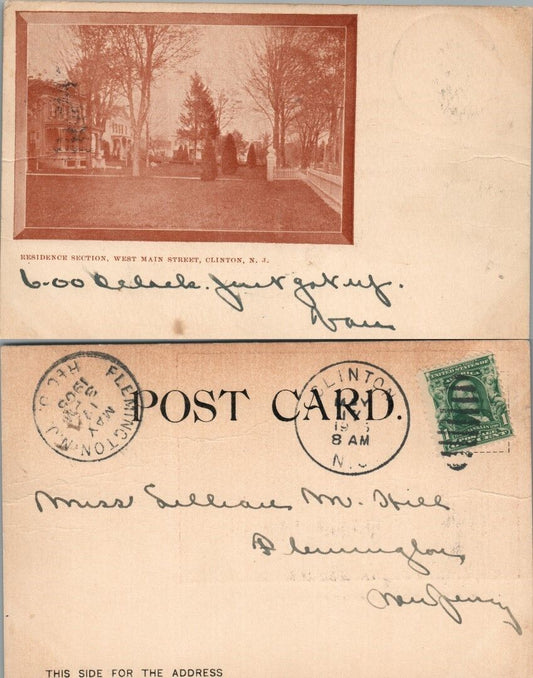 RESIDENCE SECTION, WEST MAIN STREET, CLINTON, N. J.
6-00 O'clock. Just got up.
POST CARD.
FLEMINGTON, N.J.
REC'D.
MAY
1903
CLINTON
8 AM
N.J.
Miss Lillian M. Hill
Flemington
New Jersey
THIS SIDE FOR THE ADDRESS